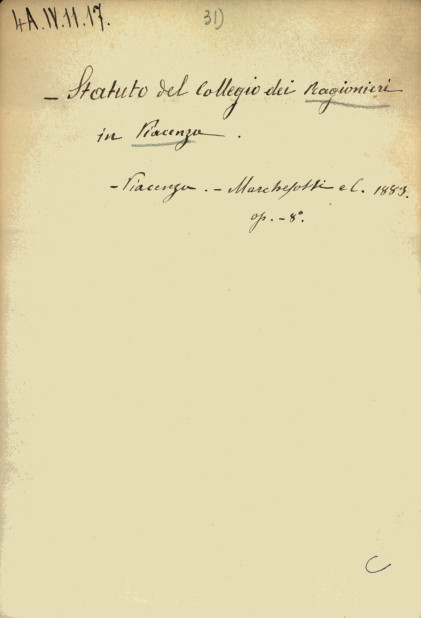 4A.IV.11.17.
31)
- Statuto del Collegio dei Ragionieri
in Piacenza.
- Piacenza. - Marchesotti e C. 1883.
op. - 8°.
C